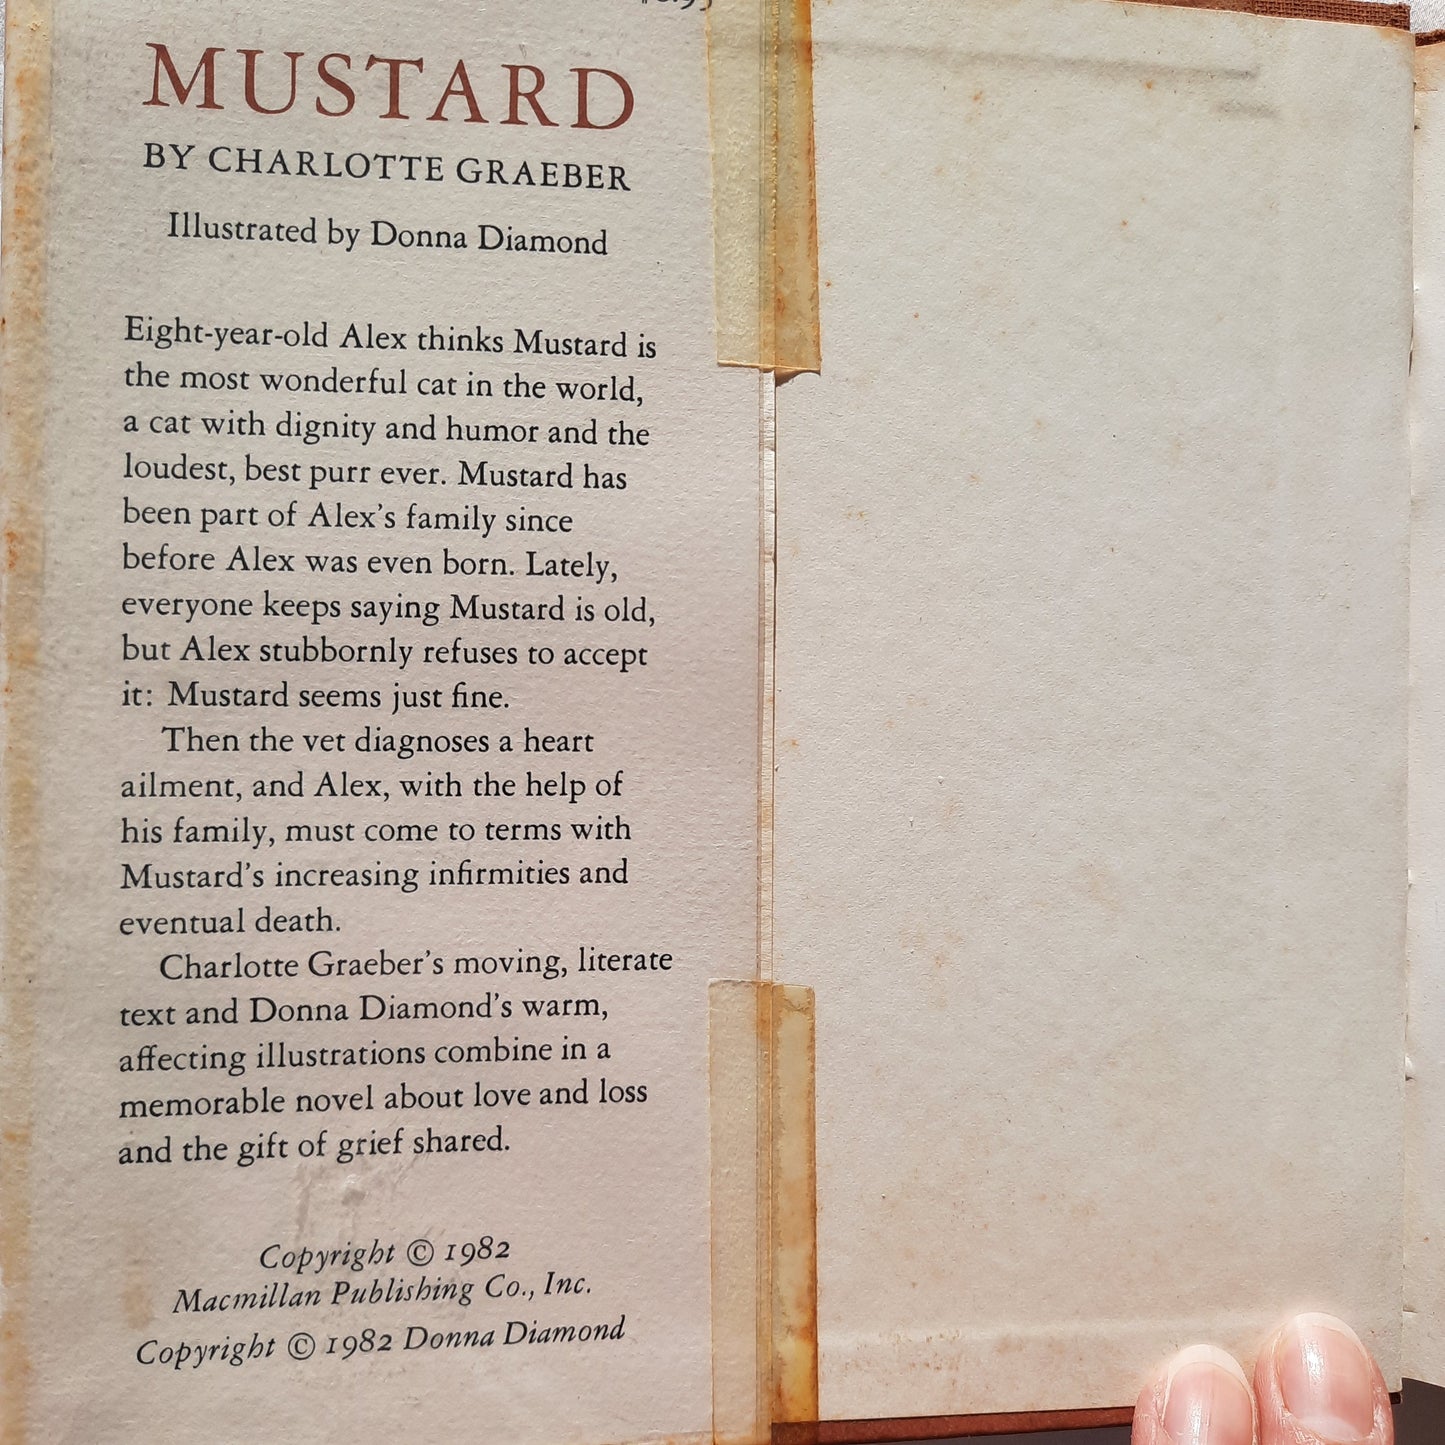 MUSTARD
BY CHARLOTTE GRAEBER
Illustrated by Donna Diamond
Eight-year-old Alex thinks Mustard is
the most wonderful cat in the world,
a cat with dignity and humor and the
loudest, best purr ever. Mustard has
been part of Alex's family since
before Alex was even born. Lately,
everyone keeps saying Mustard is old,
but Alex stubbornly refuses to accept
it: Mustard seems just fine.
Then the vet diagnoses a heart
ailment, and Alex, with the help of
his family, must come to terms with
Mustard's increasing infirmities and
eventual death.
Charlotte Graeber's moving, literate
text and Donna Diamond's warm,
affecting illustrations combine in a
memorable novel about love and loss
and the gift of grief shared.
Copyright © 1982
Macmillan Publishing Co., Inc.
Copyright © 1982 Donna Diamond